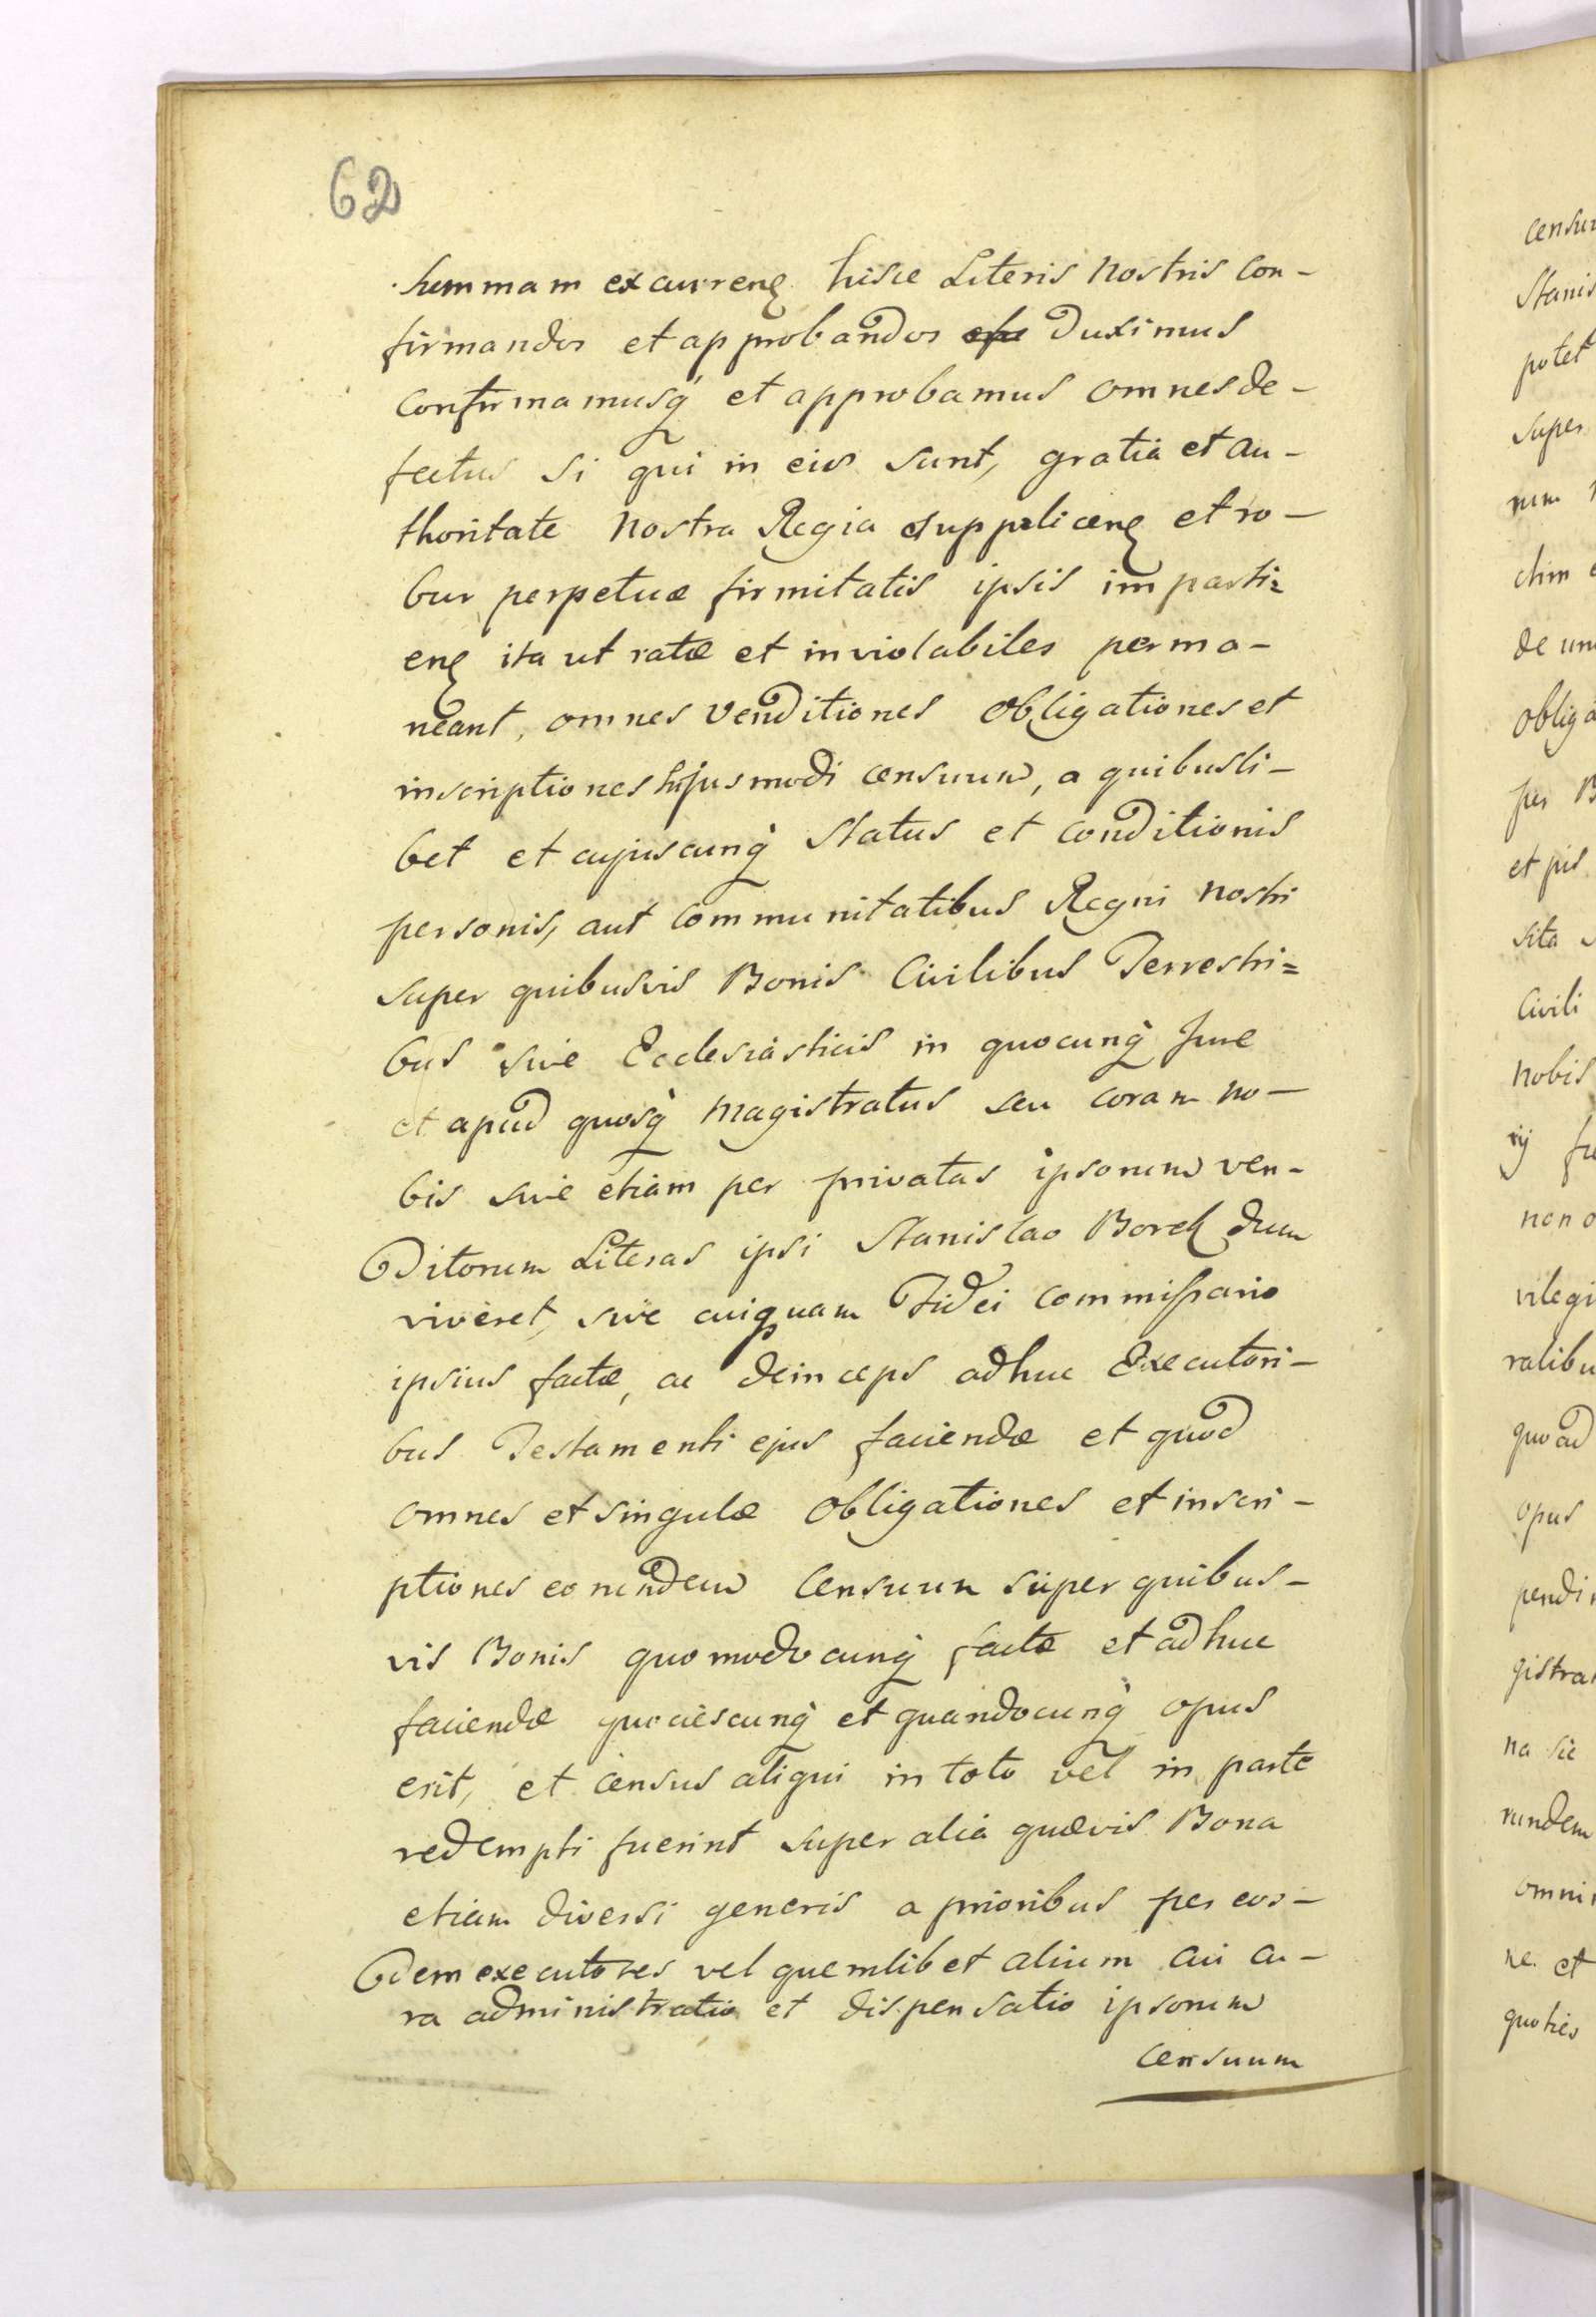 62
summam excurreng hisce Literis Nostris Con-
firmandos et approbandos esse Duximus
Confirmamusq́ et approbamus omnes de-
fectus si qui in eis sunt, gratia et Au-
thoritate Nostra Regia suppliceng et ro-
bur perpetuæ firmitatis ipsis imparti=
eng ita ut ratæ et inviolabiles perma-
neant, omnes Venditiones Obligationes et
inscriptiones hujusmodi censuum, a quibusli-
bet et cujuscunq́ Status et Conditionis
personis, aut Communitatibus Regni Nostri
super quibusvis Bonis Civilibus Terrestri=
bus sive Ecclesiasticis in quocunq́ Jure
et apud quosq́ Magistratus seu coram no-
bis sive etiam per privatas ipsorum ven-
ditorum Literas ipsi Stanislao Borek dum
viveret, sive cuiquam Fidei Commissario
ipsius factæ, ac deinceps adhuc Executori-
bus Testamenti ejus faciendæ et quod
omnes et singulæ Obligationes et inscri-
ptiones eorundem Censuum super quibus-
vis Bonis quomodocunq́ factæ et adhuc
faciendæ quociescunq́ et quandocunq́ opus
erit, et census aliqui in toto vel in parte
redempti fuerint super alia quævis Bona
etiam diversi generis a prioribus per eos-
dem executores vel quemlibet alium cui cu-
ra administratio et dispensatio ipsorum
Censuum
censu
Stanis
potet
super
rum
chim
de un
obliga
per B
et pis
sita
Civili
nobis
rij
non o
vilegi
ralibu
quoad
opus
pendi
gistra
na sic
rundem
omni
ne et
quoties